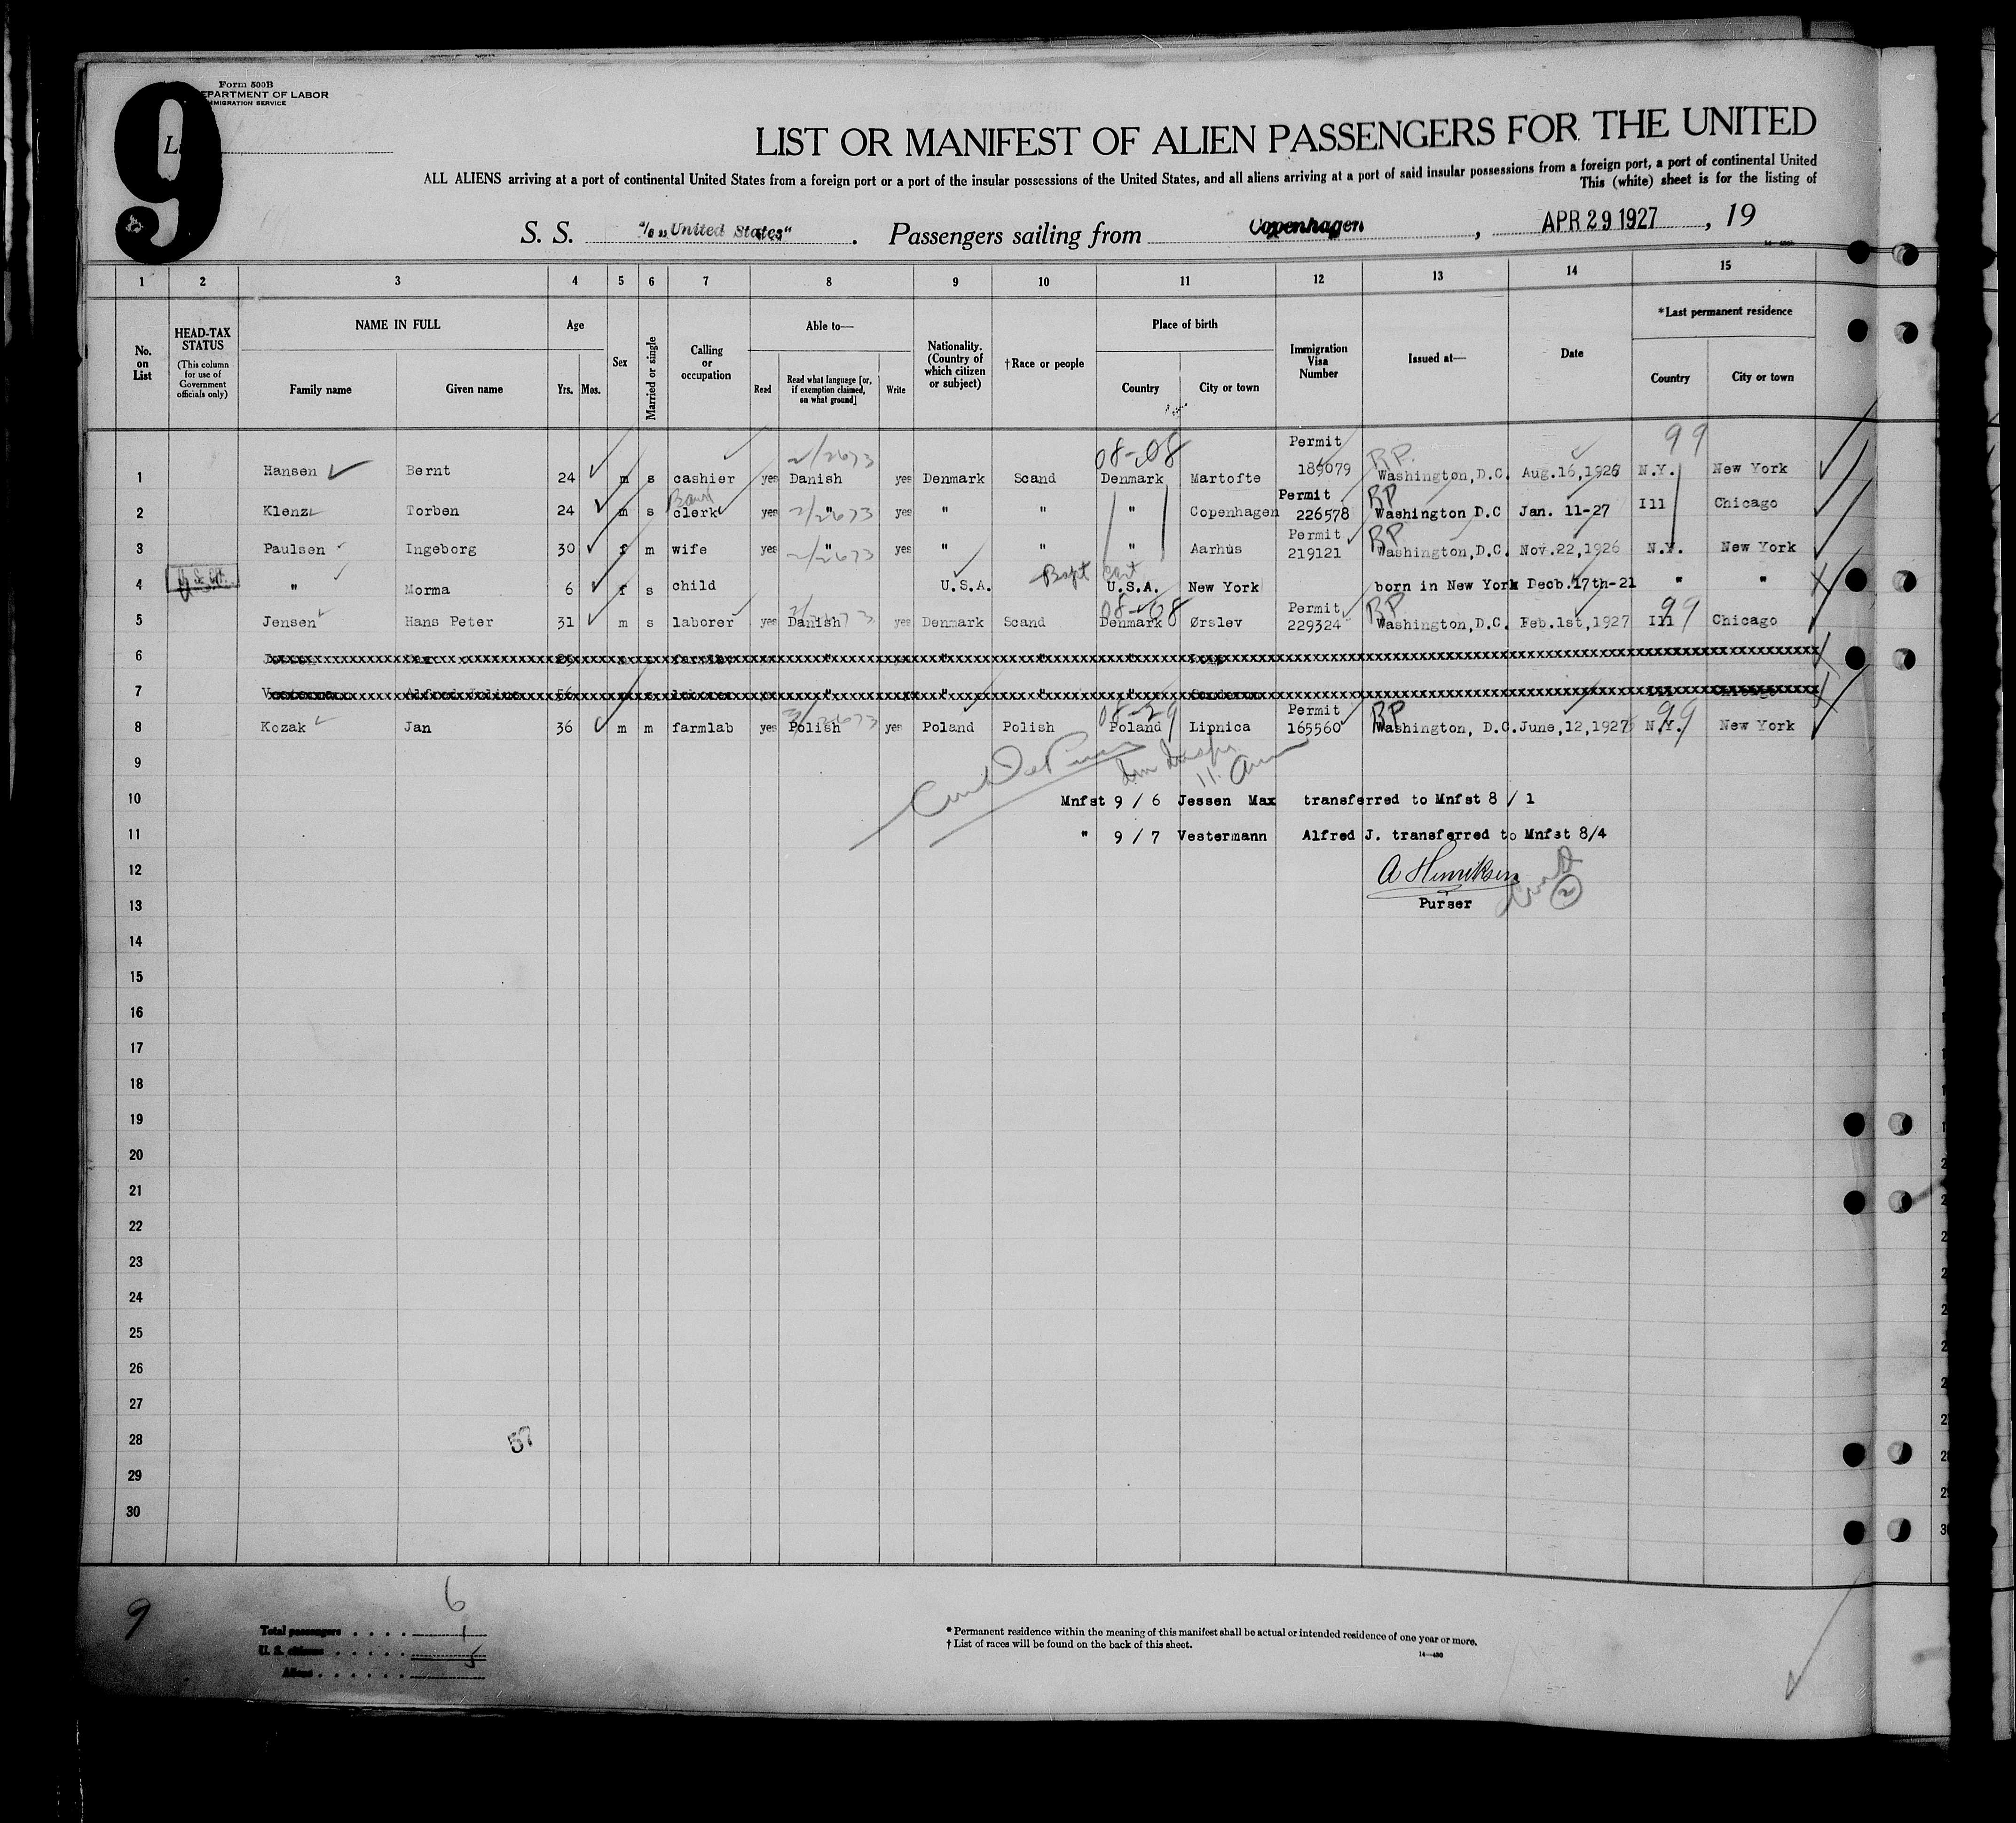 9
Form 500B
EPARTMENT OF LABOR
MMIGRATION SERVICE
LIST OR MANIFEST OF ALIEN PASSENGERS FOR THE UNITED
ALL ALIENS arriving at a port of continental United States from a foreign port or a port of the insular possessions of the United States, and all aliens arriving at a port of said insular possessions from a foreign port, a port of continental United
This (white) sheet is for the listing of
S. S. s/s "United States" . Passengers sailing from Copenhagen , APR 29 1927 , 19
1 2 3 4 5 6 7 8 9 10 11 12 13 14 15
No. on List
HEAD-TAX STATUS
(This column for use of Government officials only)
NAME IN FULL
Family name Given name
Age
Yrs. Mos.
Sex
Married or single
Calling or occupation
Able to—
Read
Read what language [or, if exemption claimed, on what ground]
Write
Nationality. (Country of which citizen or subject)
†Race or people
Place of birth
Country City or town
Immigration Visa Number
Issued at—
Date
*Last permanent residence
Country City or town
2/2673 08-08 Permit RP 99
1 Hansen Bernt 24 m s cashier yes Danish yes Denmark Scand Denmark Martofte 189079 Washington,D.C. Aug.16,1926 N.Y. New York
Permit RP
2 Klenz Torben 24 m s clerk yes " 2/2673 yes " " " Copenhagen 226578 Washington D.C Jan. 11-27 Ill Chicago
Permit RP
3 Paulsen Ingeborg 30 f m wife yes " 2/2673 yes " " " Aarhus 219121 Washington,D.C. Nov.22,1926 N.Y. New York
Bapt Cert
4 " Morma 6 f s child U.S.A. U.S.A. New York born in New York Decb.17th-21 " "
08-08 Permit RP 99
5 Jensen Hans Peter 31 m s laborer yes Danish yes Denmark Scand Denmark Ørslev 229324 Washington,D.C. Feb.1st,1927 Ill Chicago
6 farmlab " " " "
7 Alfred Julius 56 laborer " " " "
08-29 Permit RP 99
8 Kozak Jan 36 m m farmlab yes Polish yes Poland Polish Poland Lipnica 165560 Washington, D.C. June,12,1927 N.Y. New York
9
10 Mnfst 9 / 6 Jessen Max transferred to Mnfst 8 / 1
11 " 9 / 7 Vestermann Alfred J. transferred to Mnfst 8/4
12 A Henriksen
13 Purser
2
14
15
16
17
18
19
20
21
22
23
24
25
26
27
28 57
29
30
9
6
Total passengers . . . . 1
U. S. citizens . . . . . 5
Aliens . . . . . .
* Permanent residence within the meaning of this manifest shall be actual or intended residence of one year or more.
† List of races will be found on the back of this sheet.
14—480